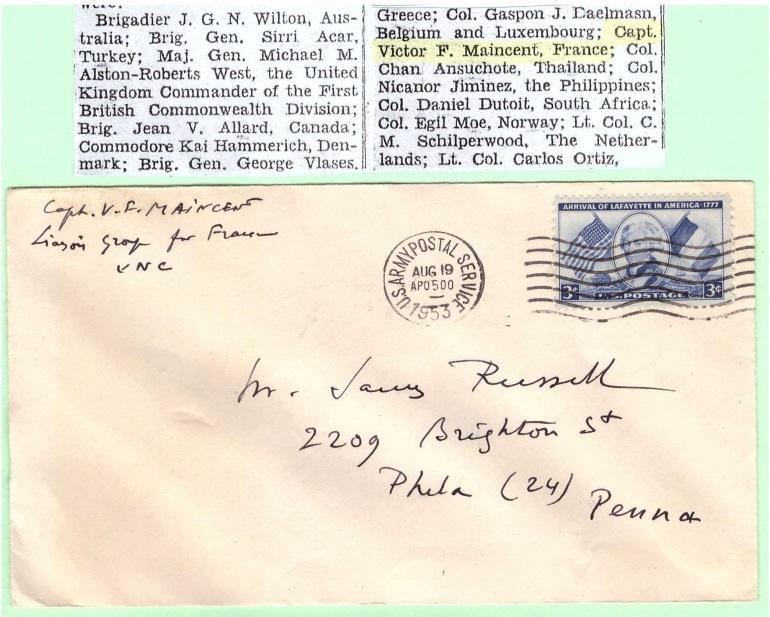 were:
Brigadier J. G. N. Wilton, Aus-
tralia; Brig. Gen. Sirri Acar,
Turkey; Maj. Gen. Michael M.
Alston-Roberts West, the United
Kingdom Commander of the First
British Commonwealth Division;
Brig. Jean V. Allard, Canada;
Commodore Kai Hammerich, Den-
mark; Brig. Gen. George Vlases,
Greece; Col. Gaspon J. Daelmasn,
Belgium and Luxembourg; Capt.
Victor F. Maincent, France; Col.
Chan Ansuchote, Thailand; Col.
Nicanor Jiminez, the Philippines;
Col. Daniel Dutoit, South Africa;
Col. Egil Moe, Norway; Lt. Col. C.
M. Schilperwood, The Nether-
lands; Lt. Col. Carlos Ortiz,
Capt. V. F. MAINCENT
Liaison Group for France
UNC
U.S. ARMY POSTAL SERVICE
AUG 19
APO 500
1953
ARRIVAL OF LAFAYETTE IN AMERICA-1777
3¢ U.S. POSTAGE 3¢
Mr. James Russell
2209 Brighton St
Phila (24)
Penna